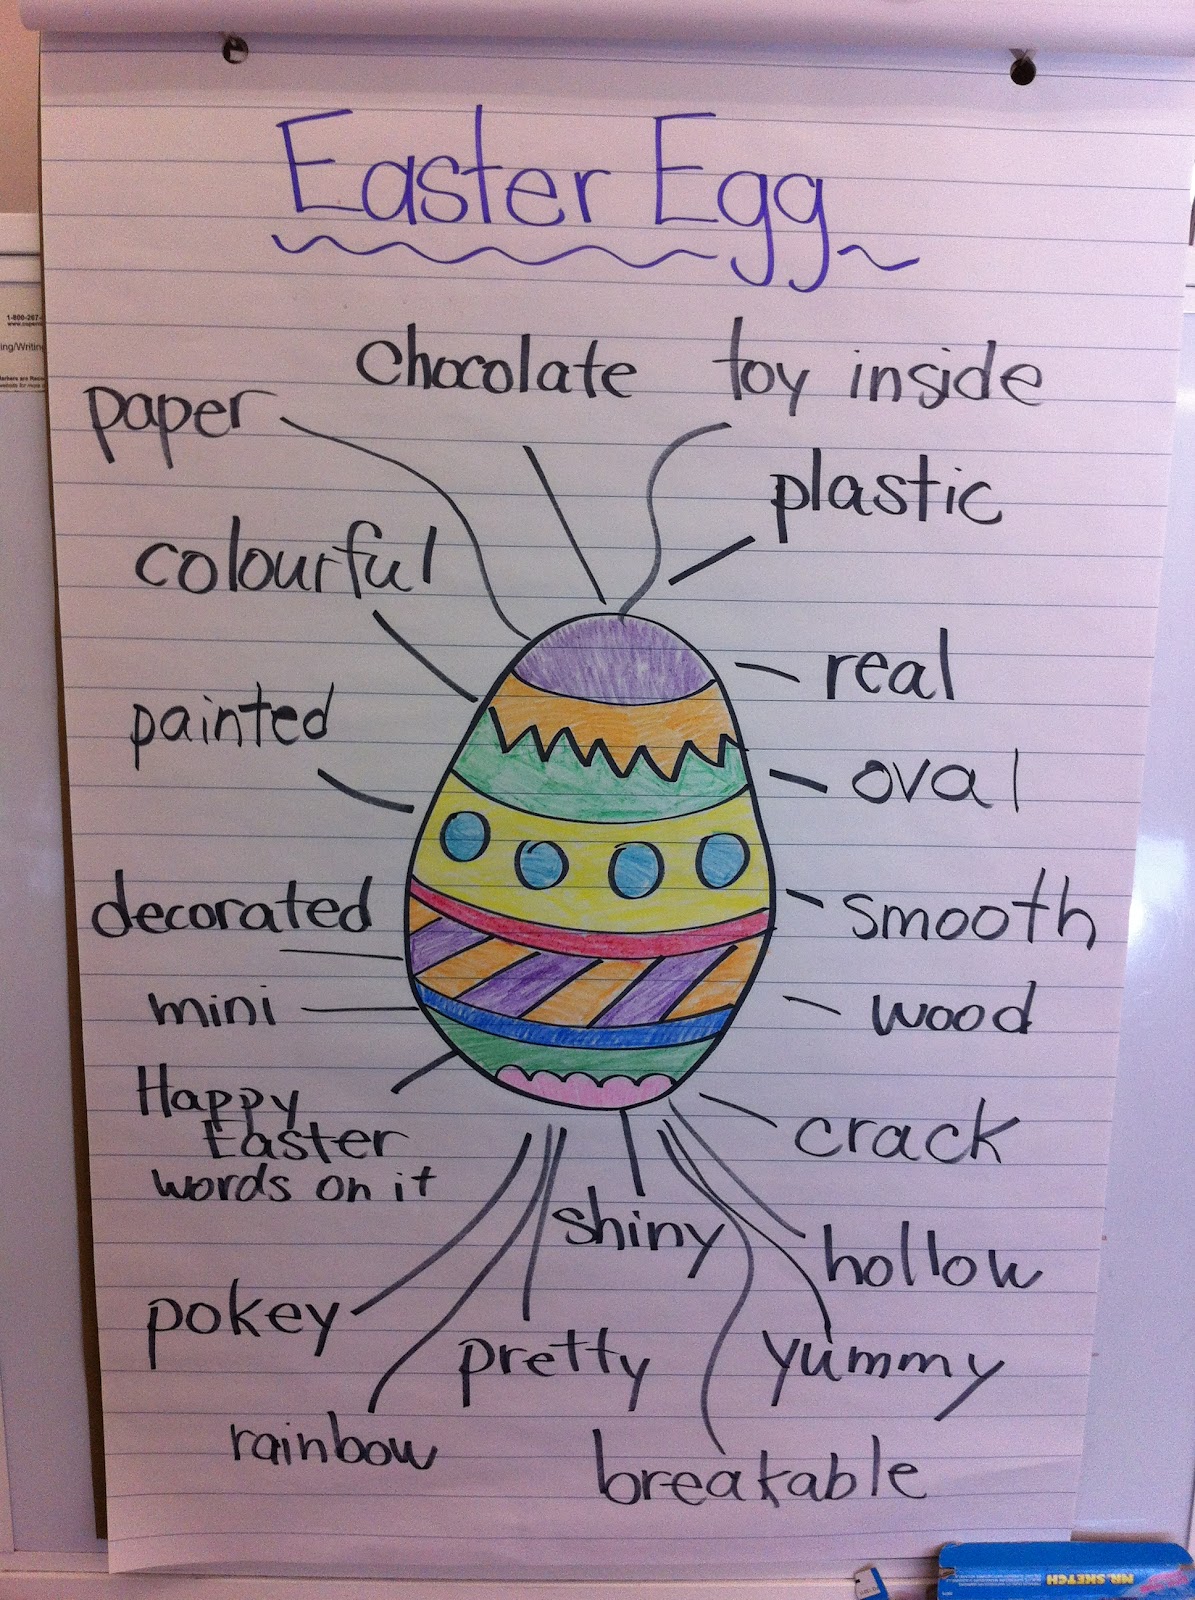 Easter Egg
chocolate toy inside
paper
plastic
colourful
real
painted
oval
decorated
smooth
mini
wood
Happy
Easter
words on it
crack
shiny
hollow
pokey
pretty
yummy
rainbow
breakable
1-800-267-
MR. SKETCH